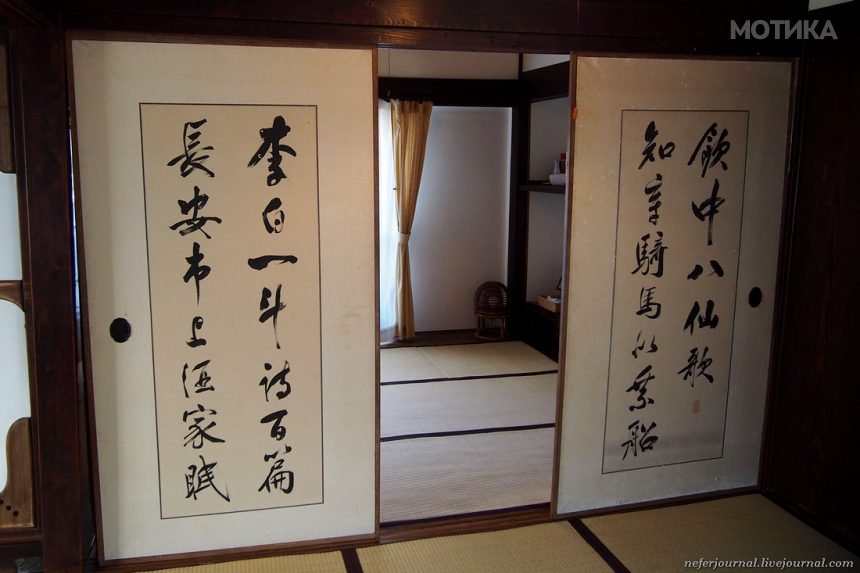 МОТИКА
飲中八仙歌
知章騎馬似乗船
李白一斗詩百篇
長安市上酒家眠
neferjournal.livejournal.com